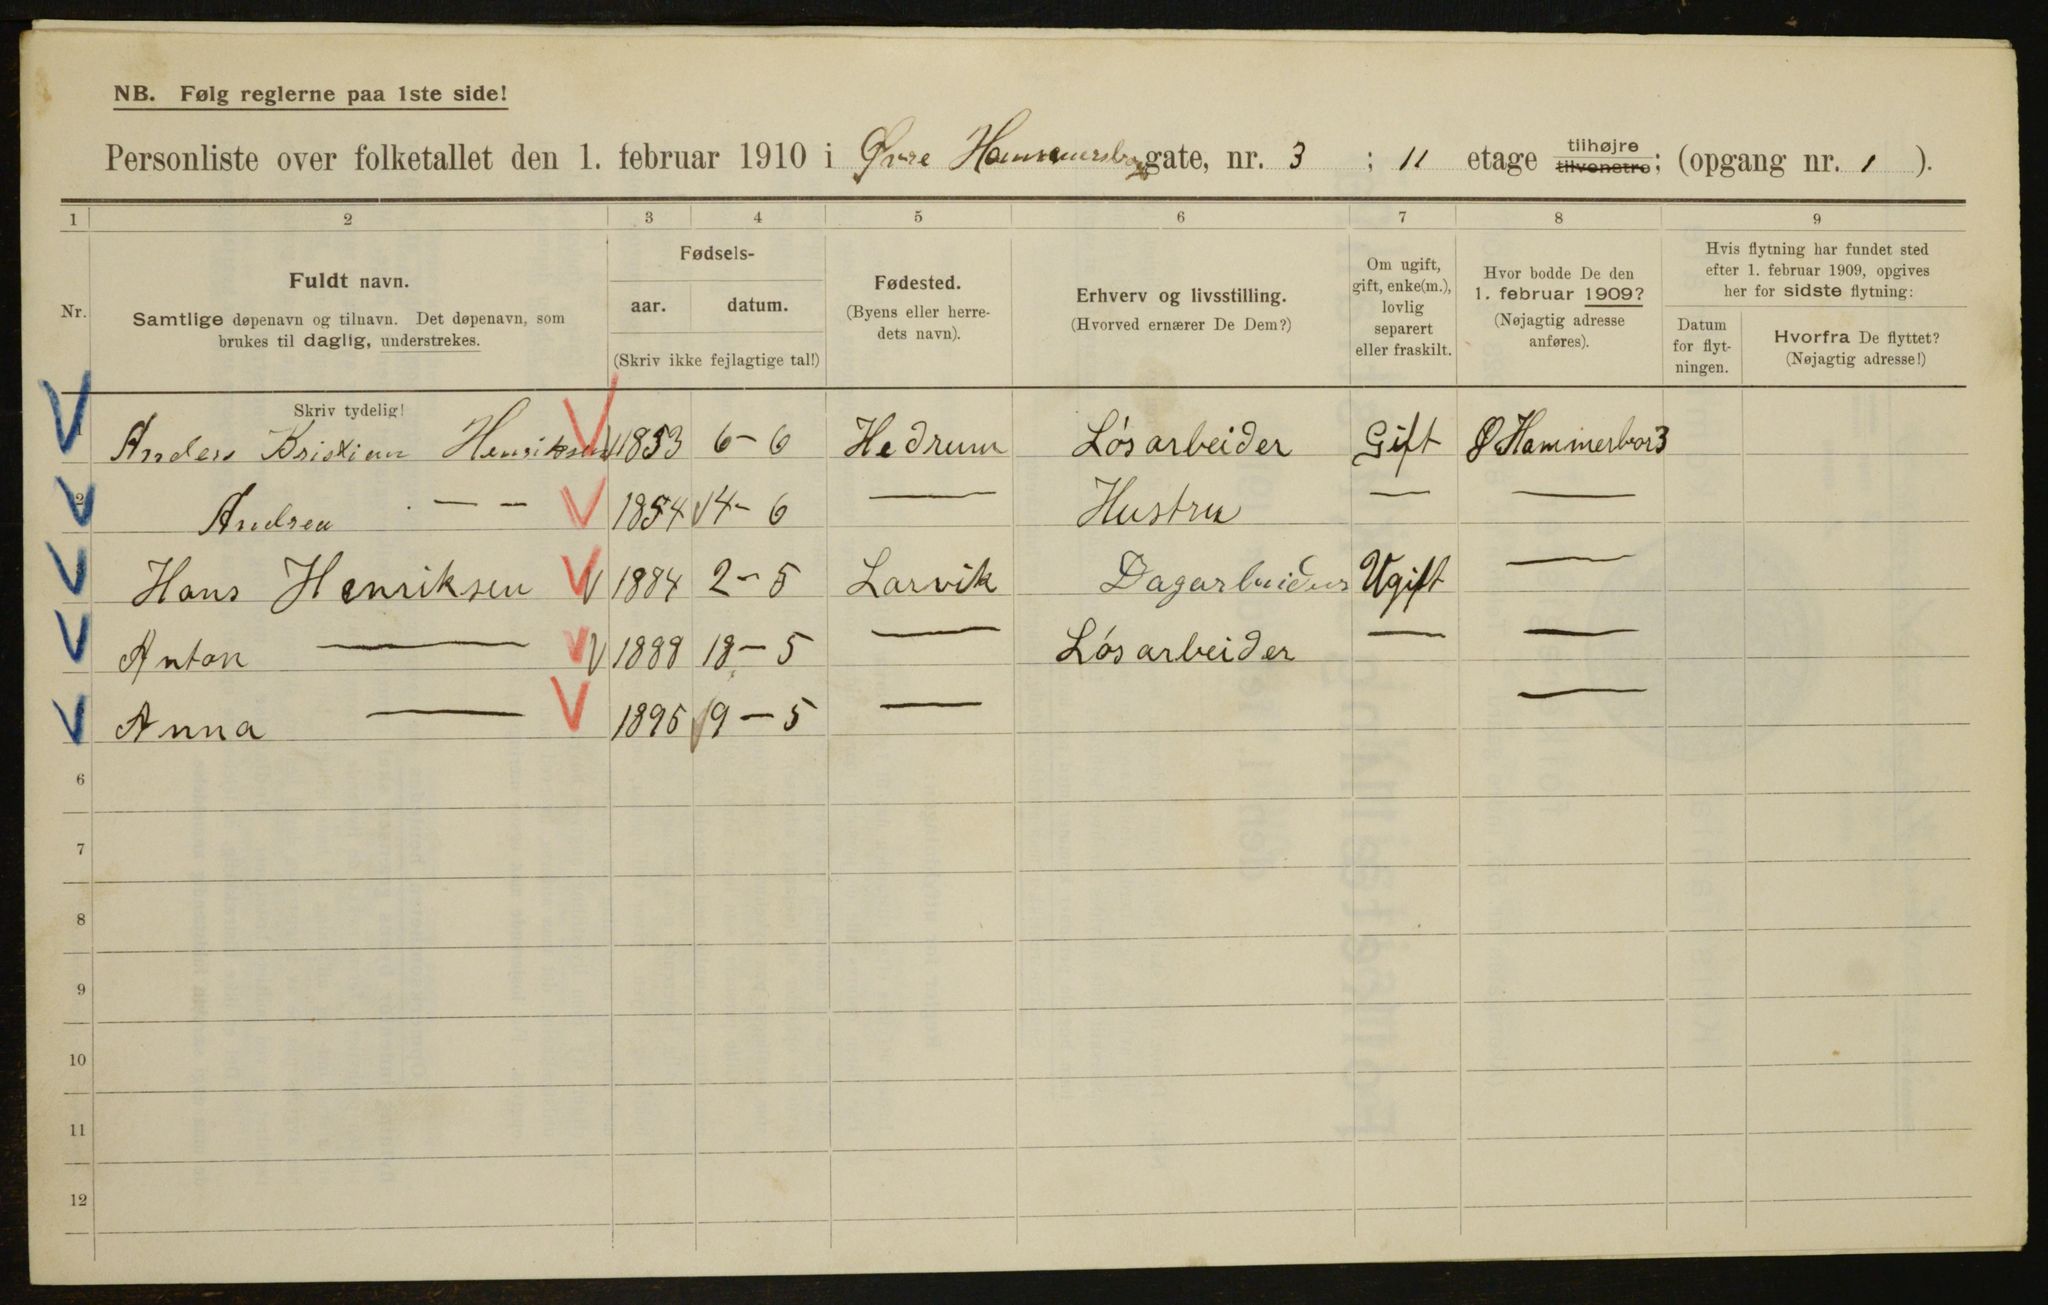 NB. Følg reglerne paa 1ste side!
Personliste over folketallet den 1. februar 1910 i Øvre Hammersborg gate, nr. 3 ; 11 etage tilhøjre tilvenstre; (opgang nr. 1 ).
1 2 3 4 5 6 7 8 9
Nr.
Fuldt navn.
Samtlige døpenavn og tilnavn. Det døpenavn, som
brukes til daglig, understrekes.
Fødsels-
aar. datum.
(Skriv ikke fejlagtige tal!)
Fødested.
(Byens eller herre-
dets navn).
Erhverv og livsstilling.
(Hvorved ernærer De Dem?)
Om ugift,
gift, enke(m.),
lovlig
separert
eller fraskilt.
Hvor bodde De den
1. februar 1909?
(Nøjagtig adresse
anføres).
Hvis flytning har fundet sted
efter 1. februar 1909, opgives
her for sidste flytning:
Datum
for flyt-
ningen.
Hvorfra De flyttet?
(Nøjagtig adresse!)
Skriv tydelig!
1 Anders Kristian Henriksen 1853 6-6 Hedrum Løsarbeider Gift Ø Hammerbor 3
2 Andrea — — 1854 14-6 — Hustru — —
Hans Henriksen 1884 2-5 Larvik Dagarbeider Ugift —
Anton — 1888 18-5 — Løsarbeider — —
Anna — 1895 19-5 — —
6
7
8
9
10
11
12